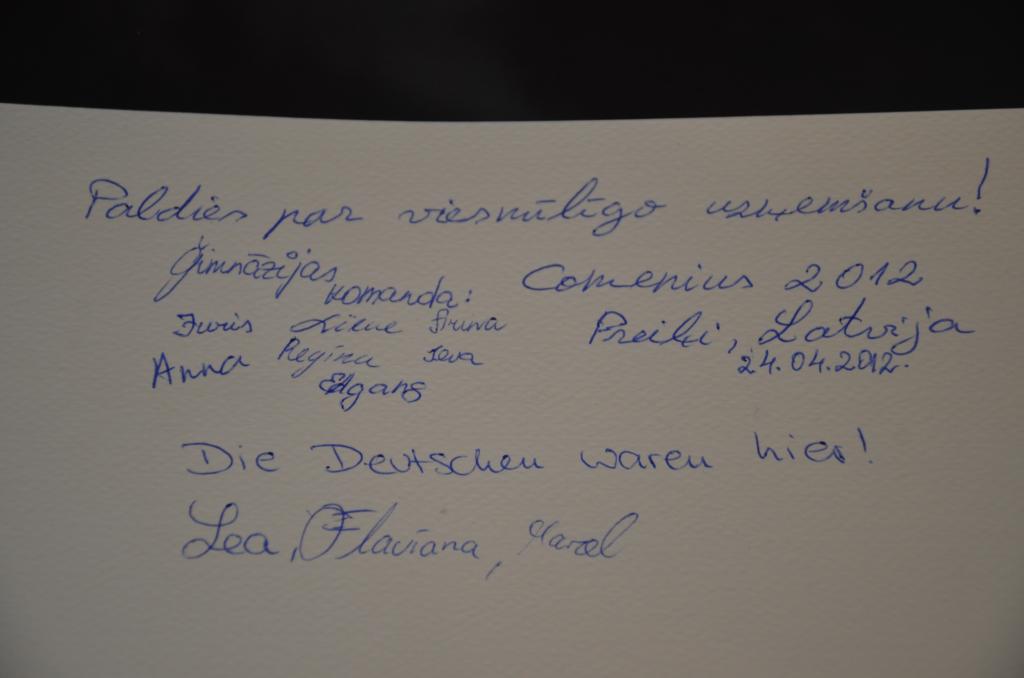 Paldies par viesmīlīgo uzņemšanu!
Ģimnāzijas
komanda:
Comenius 2012
Juris Liene
Preiļi, Latvija
Anna Regīna Ieva
24.04.2012.
Edgars
Die Deutschen waren hier!
Lea, Flaviana, Marcel